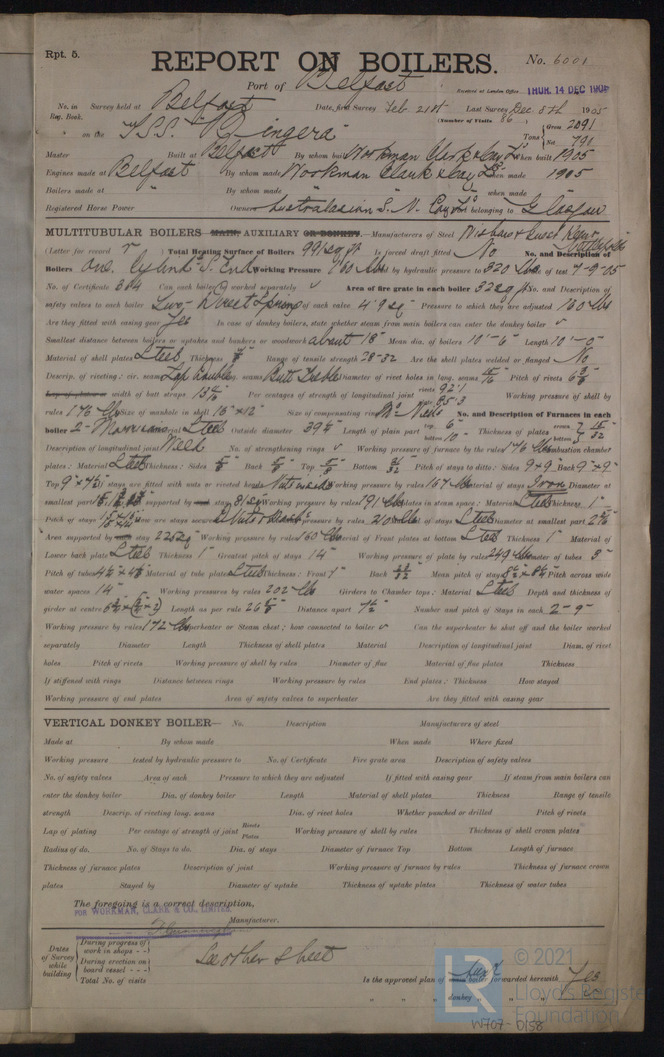 Rpt. 5.
REPORT ON BOILERS.
No. 6001
Port of Belfast
Received at London Office THUR. 14 DEC 1905
No. in Survey held at Belfast Date, first Survey Feb 21st Last Survey Dec 5th 1905
Reg. Book. (Number of Visits 86)
on the TSS. "Pingera" Tons Gross 2091
Net 791
Master Built at Belfast By whom built Workman Clark & Coy Ld When built 1905
Engines made at Belfast By whom made Workman Clark & Coy Ld when made 1905
Boilers made at " By whom made " when made "
Registered Horse Power Owners Australasian S. N. Coy Port belonging to Glasgow
MULTITUBULAR BOILERS MAIN, AUXILIARY OR DONKEY.—Manufacturers of Steel
(Letter for record r) Total Heating Surface of Boilers 991 sq ft Is forced draft fitted No No. and Description of
Boilers One Cylind. S. End Working Pressure 160 lbs Tested by hydraulic pressure to 320 lbs Date of test 7-9-05
No. of Certificate 384 Can each boiler be worked separately ✓ Area of fire grate in each boiler 32 sq ft No. and Description of
safety valves to each boiler Two- Direct Spring Area of each valve 4.9 sq" Pressure to which they are adjusted 160 lbs
Are they fitted with easing gear Yes In case of donkey boilers, state whether steam from main boilers can enter the donkey boiler ✓
Smallest distance between boilers or uptakes and bunkers or woodwork about 18" Mean dia. of boilers 10'-6" Length 10'-0"
Material of shell plates Steel Thickness Range of tensile strength 28-32 Are the shell plates welded or flanged No
Descrip. of riveting: cir. seams Lap Double long. seams Butt Treble Diameter of rivet holes in long. seams Pitch of rivets
Lap of plates or width of butt straps Per centages of strength of longitudinal joint rivets 92.1 plate 85.3 Working pressure of shell by
rules 176 lbs Size of manhole in shell 16" x 12" Size of compensating ring No. and Description of Furnaces in each
boiler 2- Morrisons Material Steel Outside diameter Length of plain part top 6" bottom 10" Thickness of plates crown bottom
Description of longitudinal joint Weld No. of strengthening rings ✓ Working pressure of furnace by the rules 176 lbs Combustion chamber
plates: Material Steel Thickness: Sides Back Top Bottom Pitch of stays to ditto: Sides 9"x9" Back 9"x9"
Top If stays are fitted with nuts or riveted heads Nuts Working pressure by rules 167 lbs Material of stays Iron Diameter at
smallest part Area supported by each stay 81 sq" Working pressure by rules 191 lbs End plates in steam space: Material Steel Thickness 1"
Pitch of stays How are stays secured Working pressure by rules Material of stays Steel Diameter at smallest part
Area supported by each stay 225 sq" Working pressure by rules 160 lbs Material of Front plates at bottom Steel Thickness 1" Material of
Lower back plate Steel Thickness 1" Greatest pitch of stays 14" Working pressure of plate by rules 249 lbs Diameter of tubes 3"
Pitch of tubes Material of tube plates Steel Thickness: Front 1" Back Mean pitch of stays Pitch across wide
water spaces 14" Working pressures by rules 202 lbs Girders to Chamber tops: Material Steel Depth and thickness of
girder at centre Length as per rule Distance apart Number and pitch of Stays in each 2-9"
Working pressure by rules 172 lbs Superheater or Steam chest; how connected to boiler ✓ Can the superheater be shut off and the boiler worked
separately Diameter Length Thickness of shell plates Material Description of longitudinal joint Diam. of rivet
holes Pitch of rivets Working pressure of shell by rules Diameter of flue Material of flue plates Thickness
If stiffened with rings Distance between rings Working pressure by rules End plates: Thickness How stayed
Working pressure of end plates Area of safety valves to superheater Are they fitted with easing gear
VERTICAL DONKEY BOILER— No. Description Manufacturers of steel
Made at By whom made When made Where fixed
Working pressure tested by hydraulic pressure to No. of Certificate Fire grate area Description of safety valves
No. of safety valves Area of each Pressure to which they are adjusted If fitted with easing gear If steam from main boilers can
enter the donkey boiler Dia. of donkey boiler Length Material of shell plates Thickness Range of tensile
strength Descrip. of riveting long. seams Dia. of rivet holes Whether punched or drilled Pitch of rivets
Lap of plating Per centage of strength of joint Rivets Plates Working pressure of shell by rules Thickness of shell crown plates
Radius of do. No. of Stays to do. Dia. of stays Diameter of furnace Top Bottom Length of furnace
Thickness of furnace plates Description of joint Working pressure of furnace by rules Thickness of furnace crown
plates Stayed by Diameter of uptake Thickness of uptake plates Thickness of water tubes
The foregoing is a correct description,
FOR WORKMAN, CLARK & CO., LIMITED.
Manufacturer.
Dates of Survey while building
During progress of work in shops - -
During erection on board vessel - - -
Total No. of visits
See other sheet
Is the approved plan of boiler forwarded herewith Yes
" " " donkey " " "
© 2021
LR
Lloyd's Register
Foundation
W707-0158